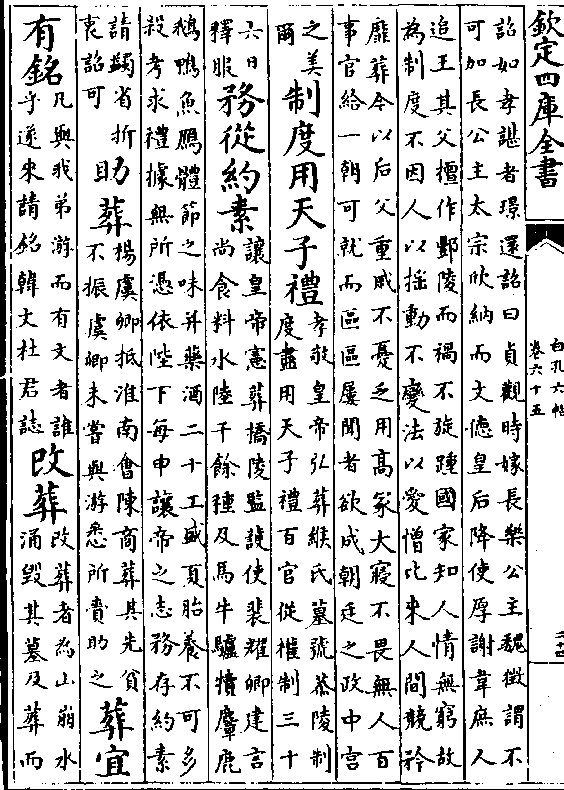 欽定四庫全書
白孔六帖
卷六十五
二十四
詔如孝諶者璟還詔曰貞觀時嫁長樂公主魏徵謂不
可加長公主太宗欣納而文德皇后降使厚謝韋庶人
追王其父擅作酆陵而禍不旋踵國家知人情無窮故
為制度不因人以搖動不變法以愛憎比來人間競矜
靡葬今以后父重戚不憂乏用高冡大寢不畏無人百
事官給一朝可就而區區屢聞者欲成朝廷之政中宫
之美
爾
制度用天子禮
孝敬皇帝弘葬緱氏墓號恭陵制
度盡用天子禮百官從權制三十
六日
釋服
務從約素
讓皇帝憲葬橋陵監護使裴耀卿建言
尚食料水陸千餘種及馬牛驢犢麞鹿
鵝鴨魚鴈體節之味并藥酒二十工盛夏胎養不可多
殺考求禮據無所憑依陛下每申讓帝之志務存約素
請蠲省折
衷詔可
助葬
楊虞卿抵淮南會陳商葬其先貧
不振虞卿未嘗與游悉所賫助之
葬宜
有銘
凡與我弟游而有文者誰
乎遂來請銘韓文杜君誌
改葬
改葬者為山崩水
涌毀其墓及葬而